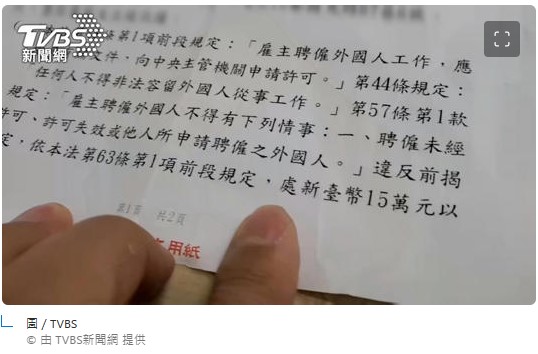 TVBS
新聞網
條第1項前段規定：「雇主聘僱外國人工作，應
文件，向中央主管機關申請許可。」第44條規定：
任何人不得非法容留外國人從事工作。」第57條第1款
規定：「雇主聘僱外國人不得有下列情事：一、聘僱未經
許可、許可失效或他人所申請聘僱之外國人。」違反前揭
定，依本法第63條第1項前段規定，處新臺幣15萬元以
第1頁 共2頁
用紙
圖 / TVBS
© 由 TVBS新聞網 提供